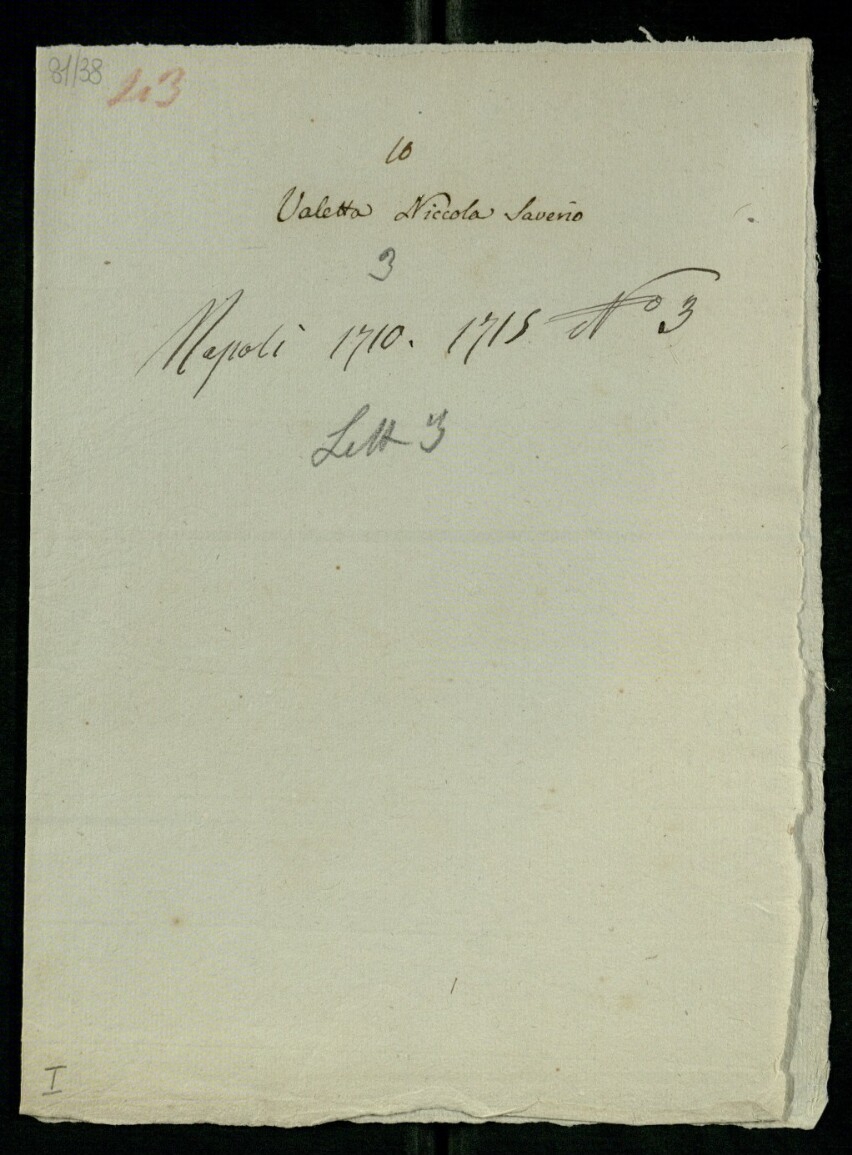 81/38
L. 3
10
Valetta Niccola Saverio
3
Napoli 1710. 1715 No 3
Lett 3
I